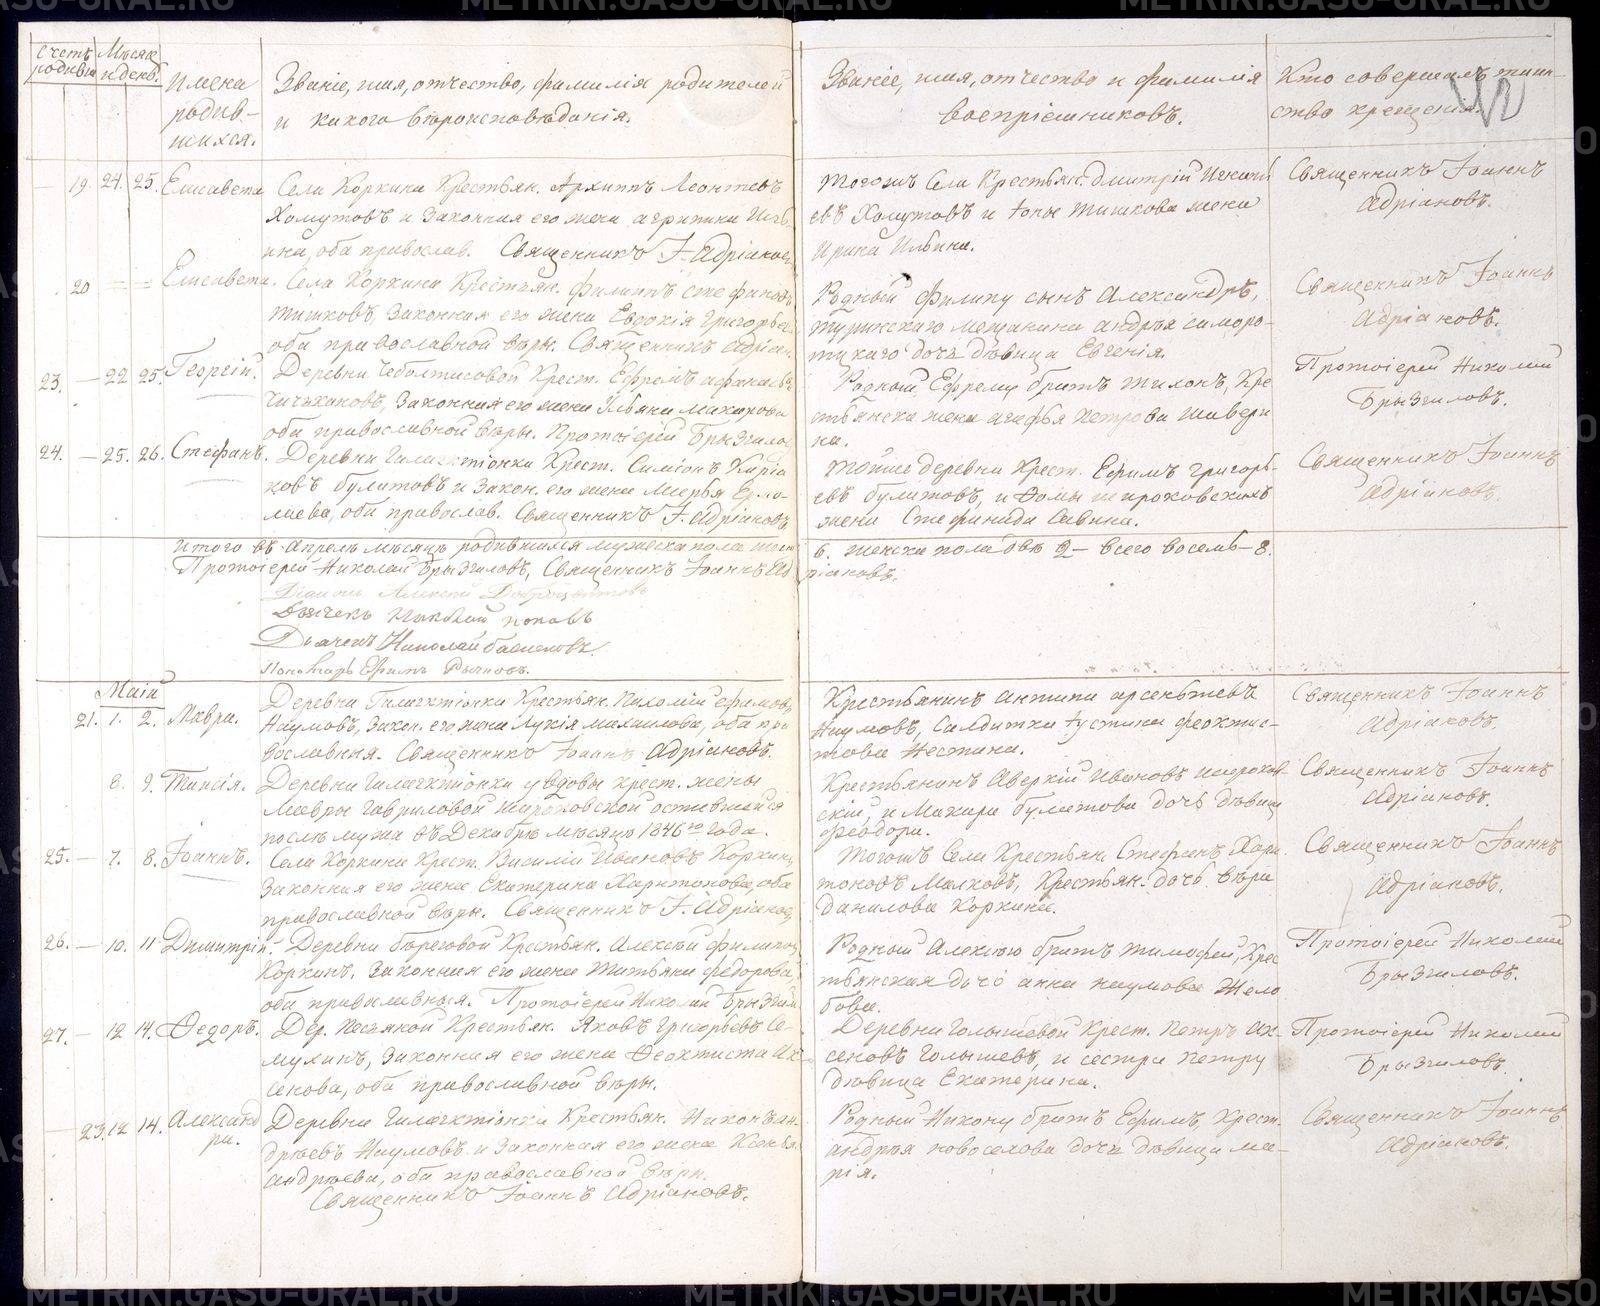 Счетъ родивш.
Мѣсяц. и день.
Имена
родив-
шихся.
Званіе, имя, отчество, фамилія родителей
и какого вѣроисповѣданія.
Званіе, имя, отчество и фамилія
воспріемниковъ.
Кто совершалъ таин-
ство крещенія.
19. 24. 25. Елисавета
Села Коркина Крестьян. Архиппъ Леонтьевъ
Хомутовъ и Законная его жена Агрипина Ильи-
ина, оба православ. Священникъ І. Адріановъ
тогожъ Села Крестьян. Дмитрій Игнатьи
евъ Хомутовъ и Іоны Тишкова жена
Ирина Ильина.
Священникъ Іоаннъ
Адріановъ.
20 = = Елисавета.
Села Коркина Крестьян. Филипъ Стефановъ
Тишковъ, Законная его жена Евдокія Григорьева
оба православной вѣры. Священникъ Адріан.
Родный Филипу сынъ Александръ,
Туринскаго мещанина Андрея
дочь дѣвица Евгенія.
Священникъ Іоаннъ
Адріановъ.
23. — 22 25. Георгій.
Деревни Крест. Ефремъ Афанасьев
Чичкановъ, Законная его жена Ульяна Макарова
оба православной вѣры. Протоіерей Брызгалов
Родный Ефрему братъ Тихонъ, Кре
стьянска жена Агафья Петрова Шавери
на.
Протоіерей Николай
Брызгаловъ.
24. — 25. 26. Стефанъ.
Деревни Галактіонки Крест. Симіонъ
Булатовъ и Закон. его жена Марья Ермо-
лаева, оба православ. Священникъ І. Адріановъ
тойже деревни Крест. Ефимъ Григорь-
евъ Булатовъ, и Ѳомы Широковскихъ
жена Стефанида Савина.
Священникъ Іоаннъ
Адріановъ.
Итого въ Апрелѣ мѣсяцѣ родившихся мужеска пола шест
6. женска пола двѣ 2 — всего восемь — 8.
Протоіерей Николай Брызгаловъ, Священникъ Іоаннъ Ад
ріановъ.
Діаконъ Алексій
Дьячекъ Николай Поповъ
Дьячекъ Николай
Пономарь Ефимъ
Маія
21. 1. 2. Мавра.
Деревни Галактіонки Крестьян. Пахомій Ефимовъ
Наумовъ, Закон. его жена Лукія Михаилова, оба пра
вославныя. Священникъ Іоаннъ Адріановъ.
Крестьянинъ Антипа Арсеньтевъ
Наумовъ, Салдатка Іустина Феоктис-
това Нестина.
Священникъ Іоаннъ
Адріановъ.
8. 9. Таисія.
Деревни Галактіонки у вдовы крест. жены
Мавры Гавриловой Широковской оставшейся
послѣ мужа въ Декабрѣ мѣсяцѣ 1846го года.
Крестьянинъ Аверкій Ивановъ Широков-
скій, и Макара Булатова дочь дѣвица
Феодора.
Священникъ Іоаннъ
Адріановъ.
25. — 7. 8. Іоаннъ.
Села Коркина Крест. Василій Ивановъ Коркин,
Законная его жена Екатерина Харитонова, оба
православной вѣры. Священникъ І. Адріановъ
тогожъ Села Крестьян. Стефанъ Хари
тоновъ Малковъ, Крестьян. дочь Вѣра
Данилова Коркина.
Священникъ Іоаннъ
Адріановъ.
26. — 10. 11 Димитрій.
Деревни Береговой Крестьян. Алексѣй Филипов
Коркинъ. Законная его жена Татьяна Федорова
оба православныя. Протоіерей Николай Брызгал.
Родный Алексѣю братъ Тимофей, Крес
тьянская дочь Анна Наумова Жело
бова.
Протоіерей Николай
Брызгаловъ.
27. — 12 14. Ѳедоръ.
Дер. Песьяной Крестьян. Яковъ Григорьевъ Се-
мухинъ, Законная его жена Ѳеоктиста Ак
сенова, оба православной вѣры.
Деревни Голышевой Крест. Петръ Ак-
сеновъ Голышевъ, и сестра Петру
дѣвица Екатерина.
Протоіерей Николай
Брызгаловъ.
— 23. 12 14. Александ
ра.
Деревни Галактіонки Крестьян. Никонъ Ан
дреевъ Наумовъ и Законная его жена Ксенья
Андреева, оба православной вѣры.
Священникъ Іоаннъ Адріановъ.
Родный Никону братъ Ефимъ, Крест.
Андрея Новоселова дочь дѣвица Ма-
рія.
Священникъ Іоаннъ
Адріановъ.
METRIKI.GASO-URAL.RU